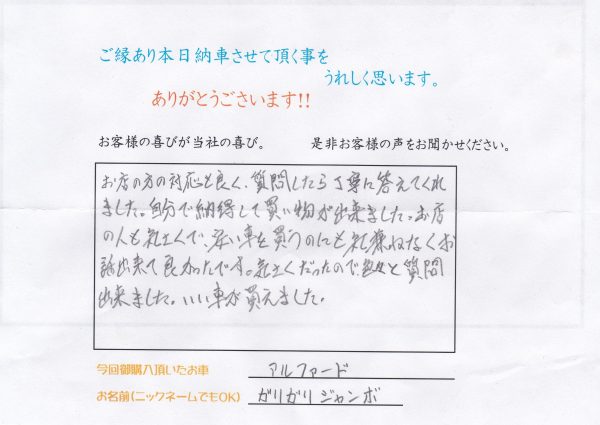 ご縁あり本日納車させて頂く事を
うれしく思います。
ありがとうございます!!
お客様の喜びが当社の喜び。 是非お客様の声をお聞かせください。
お店の方の対応も良く、質問したら丁寧に答えてくれ
ました。自分で納得して買い物が出来ました。お店
の人も気さくで、高い車を買うのにも気兼ねなくお
話出来て良かったです。気さくだったので色々と質問
出来ました。いい車が買えました。
今回御購入頂いたお車 アルファード
お名前(ニックネームでもOK) ガリガリジャンボ